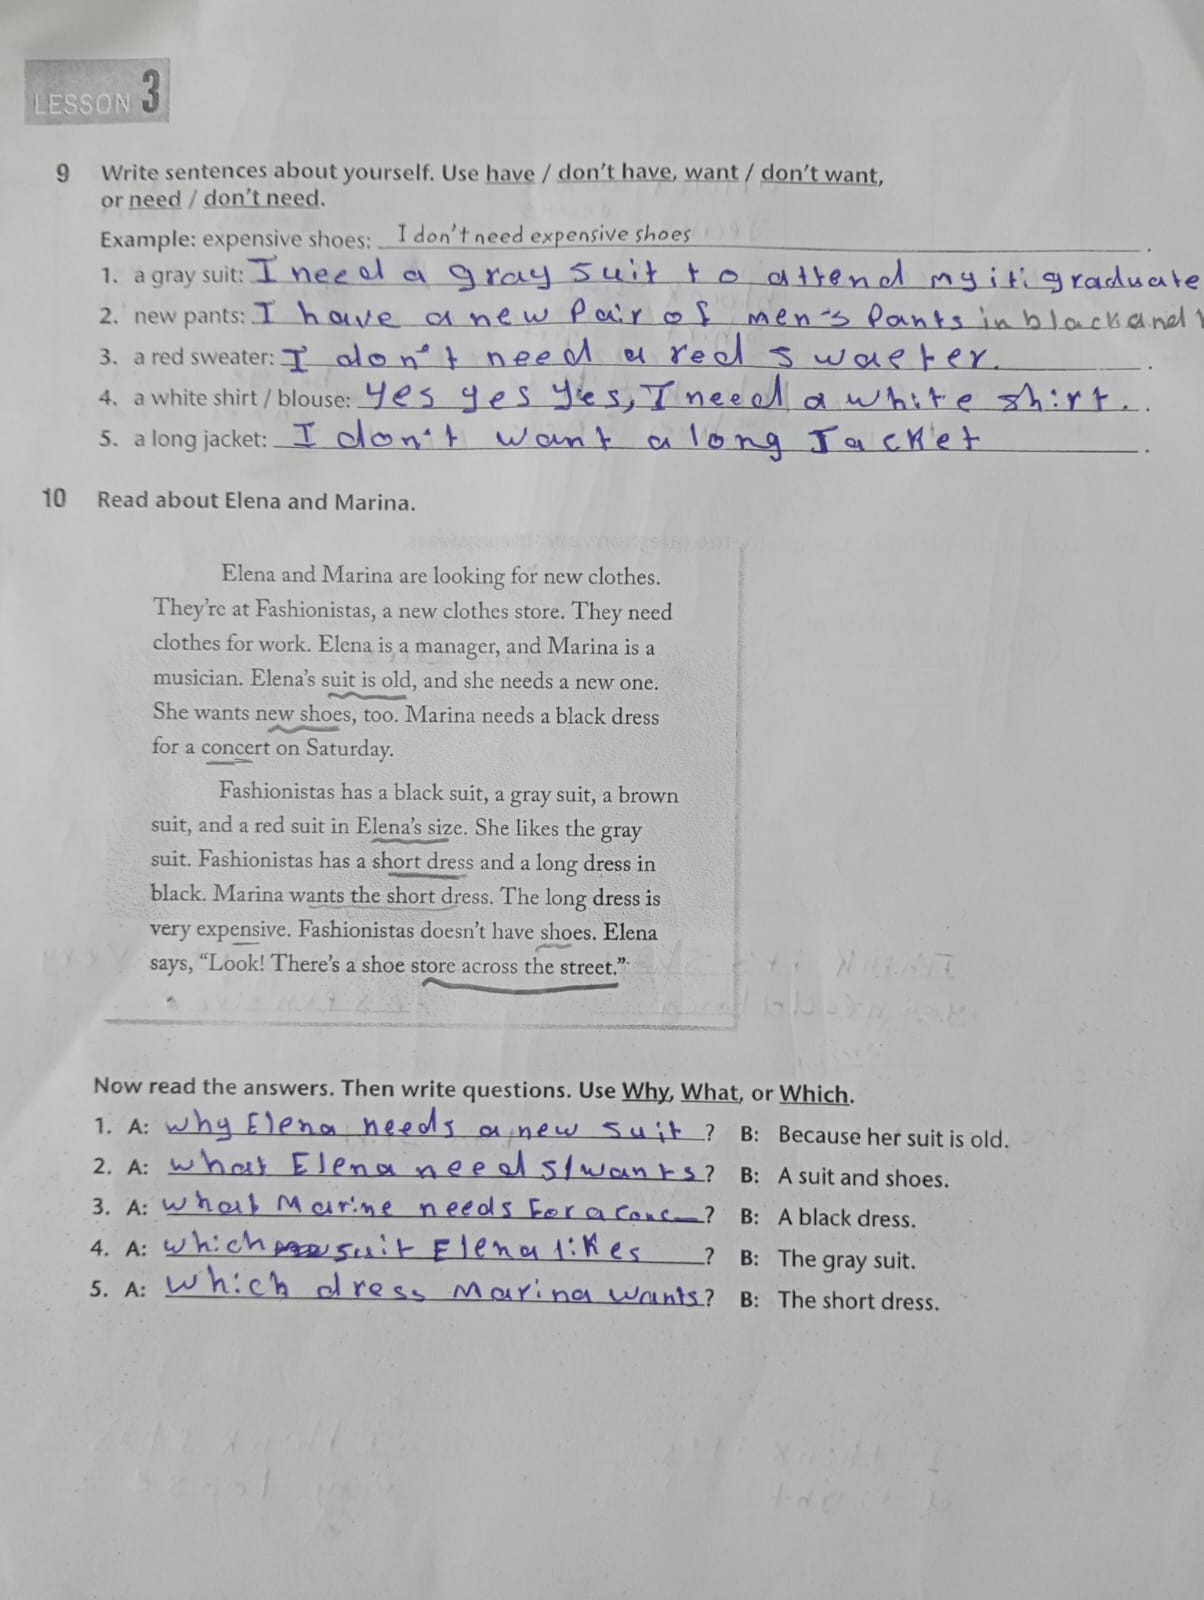 LESSON 3
9 Write sentences about yourself. Use have / don't have, want / don't want,
or need / don't need.
Example: expensive shoes: I don't need expensive shoes .
1. a gray suit: I need a gray suit to attend my iti graduate
2. new pants: I have a new Pair of men's Pants in black and
3. a red sweater: I don't need a red swaeter. .
4. a white shirt / blouse: yes yes yes, I need a white shirt. .
5. a long jacket: I don't want a long Jacket .
10 Read about Elena and Marina.
Elena and Marina are looking for new clothes.
They're at Fashionistas, a new clothes store. They need
clothes for work. Elena is a manager, and Marina is a
musician. Elena's suit is old, and she needs a new one.
She wants new shoes, too. Marina needs a black dress
for a concert on Saturday.
Fashionistas has a black suit, a gray suit, a brown
suit, and a red suit in Elena's size. She likes the gray
suit. Fashionistas has a short dress and a long dress in
black. Marina wants the short dress. The long dress is
very expensive. Fashionistas doesn't have shoes. Elena
says, "Look! There's a shoe store across the street."
Now read the answers. Then write questions. Use Why, What, or Which.
1. A: why Elena needs a new suit ? B: Because her suit is old.
2. A: what Elena needs/wants ? B: A suit and shoes.
3. A: what Marine needs For a conc ? B: A black dress.
4. A: which suit Elena likes ? B: The gray suit.
5. A: which dress Marina wants ? B: The short dress.